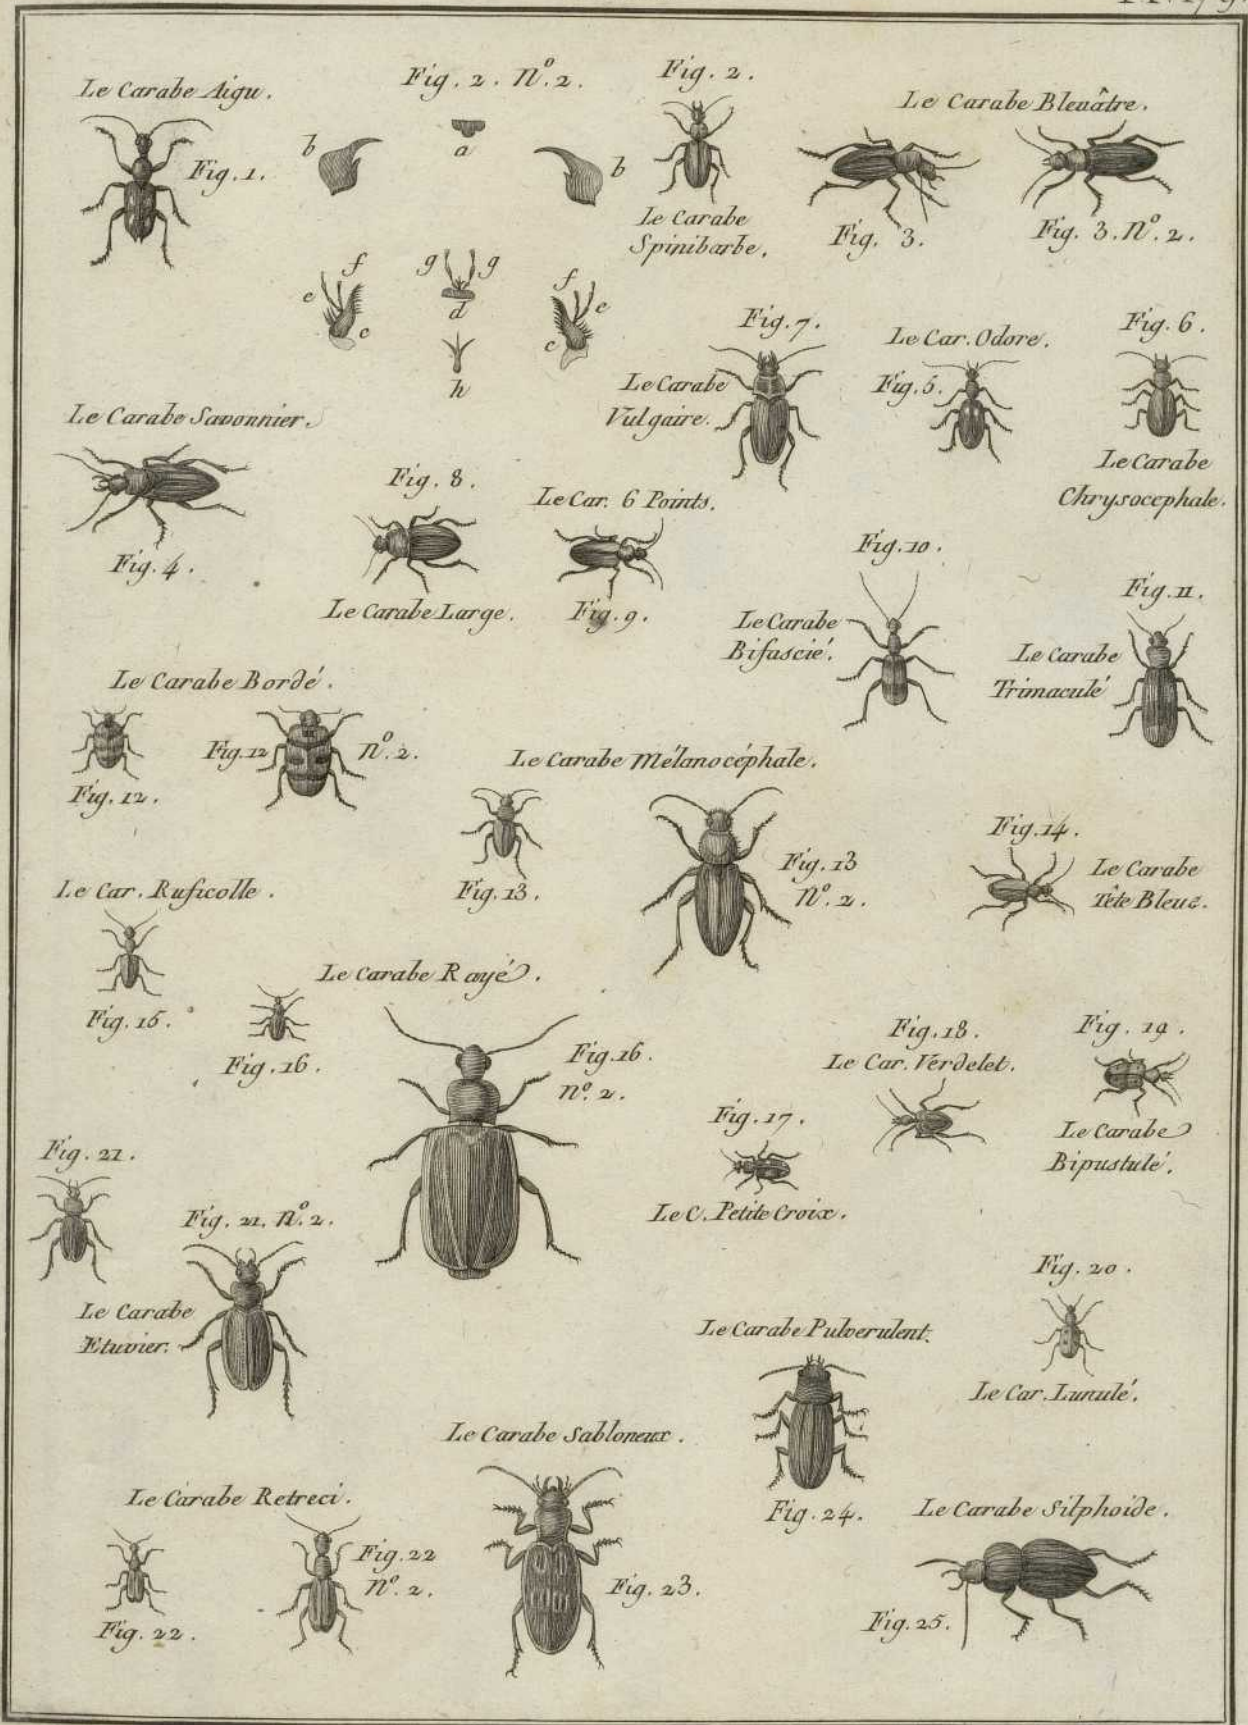 Le Carabe Aigu.
Fig. 1.
Fig. 2. N.º 2.
b
a
b
f
e
c
g
g
d
h
f
e
c
Fig. 2.
Le Carabe
Spinibarbe.
Le Carabe Bleuâtre.
Fig. 3.
Fig. 3. N.º 2.
Fig. 7.
Le Carabe
Vulgaire.
Le Car. Odore.
Fig. 5.
Fig. 6.
Le Carabe
Chrysocephale.
Le Carabe Savonnier.
Fig. 4.
Fig. 8.
Le Carabe Large.
Le Car. 6 Points.
Fig. 9.
Fig. 10.
Le Carabe
Bifascié.
Fig. 11.
Le Carabe
Trimaculé
Le Carabe Bordé.
Fig. 12.
Fig. 12
N.º 2.
Le Carabe Mélanocéphale.
Fig. 13.
Fig. 13
N.º 2.
Fig. 14.
Le Carabe
Tête Bleue.
Le Car. Ruficolle.
Fig. 15.
Le Carabe Rayé.
Fig. 16.
Fig. 16.
N.º 2.
Fig. 17.
Le C. Petite Croix.
Fig. 18.
Le Car. Verdelet.
Fig. 19.
Le Carabe
Bipustulé.
Fig. 21.
Fig. 21. N.º 2.
Le Carabe
Etuvier.
Fig. 20.
Le Car. Lunulé.
Le Carabe Pulverulent.
Fig. 24.
Le Carabe Sabloneux.
Fig. 23.
Le Carabe Retreci.
Fig. 22.
Fig. 22
N.º 2.
Le Carabe Silphoide.
Fig. 25.